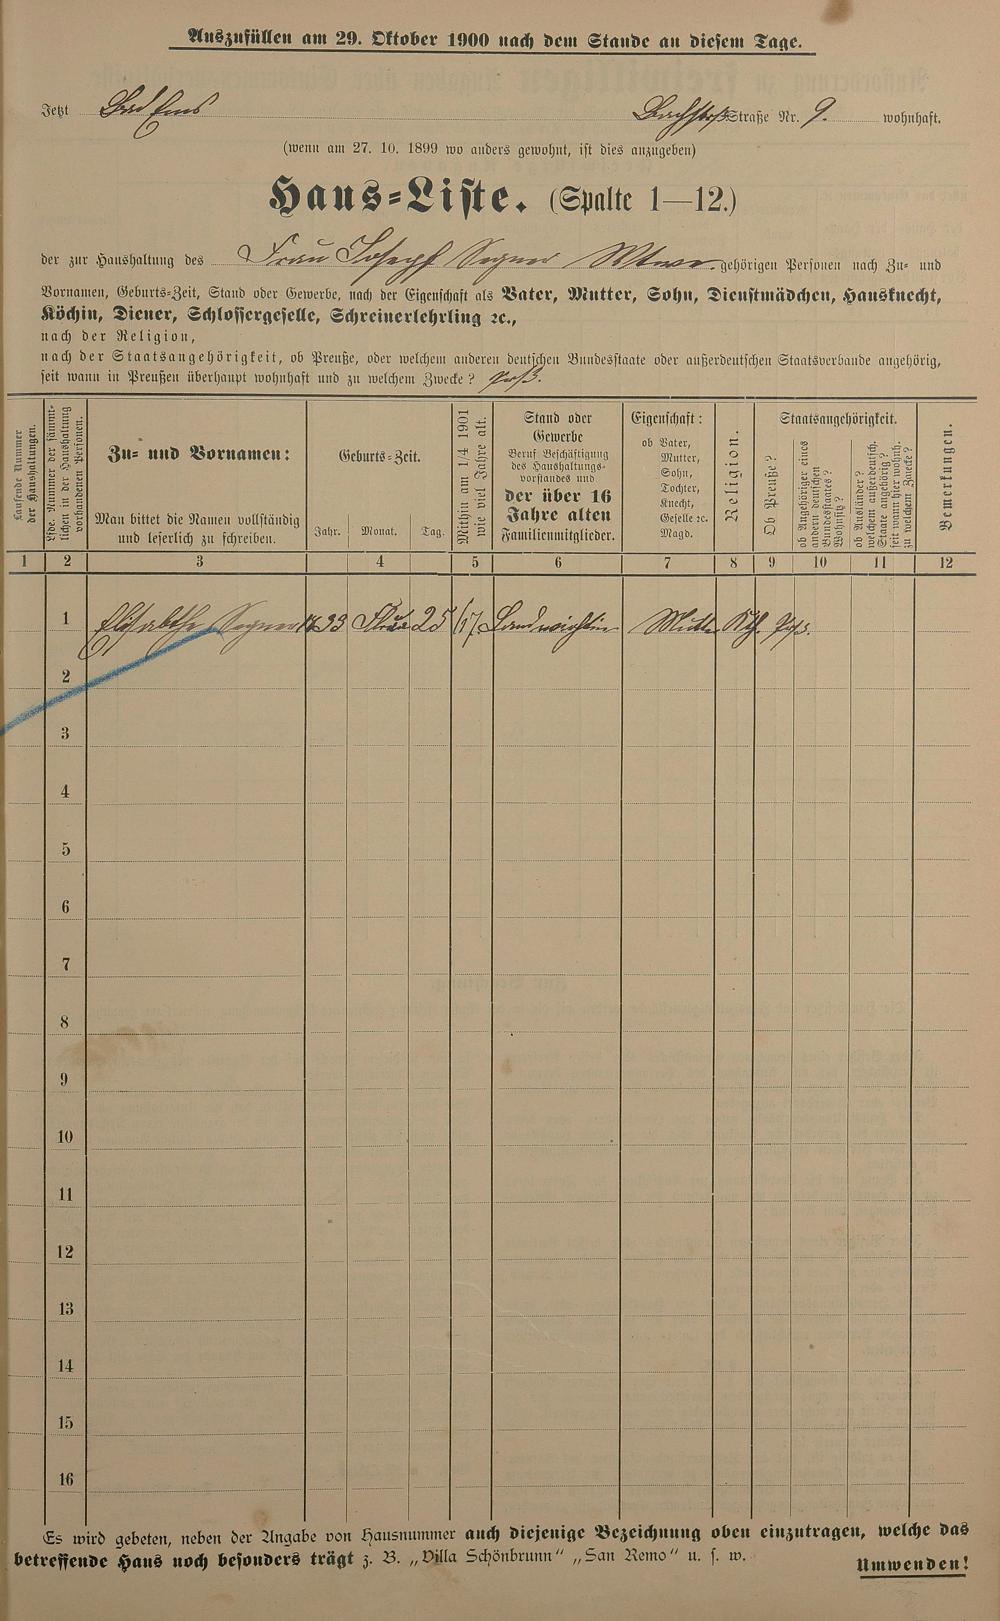 Auszufüllen am 29. Oktober 1900 nach dem Stande an diesem Tage.
Jetzt Bad Ems Bachstraße Straße Nr. 9. wohnhaft.
(wenn am 27. 10. 1899 wo anders gewohnt, ist dies anzugeben)
Haus-Liste. (Spalte 1—12.)
der zur Haushaltung des Frau Joseph Wtwe. gehörigen Personen nach Zu- und
Vornamen, Geburts-Zeit, Stand oder Gewerbe, nach der Eigenschaft als Vater, Mutter, Sohn, Dienstmädchen, Hausknecht,
Köchin, Diener, Schlossergeselle, Schreinerlehrling ꝛc.,
nach der Religion,
nach der Staatsangehörigkeit, ob Preuße, oder welchem anderen deutschen Bundesstaate oder außerdeutschen Staatsverbande angehörig,
seit wann in Preußen überhaupt wohnhaft und zu welchem Zwecke?
Laufende Nummer
der Haushaltungen.
Lfde. Nummer der sämmt-
lichen in der Haushaltung
vorhandenen Personen.
Zu- und Vornamen:
Man bittet die Namen vollständig
und leserlich zu schreiben.
Geburts-Zeit.
Jahr. Monat. Tag.
Mithin am 1/4 1901
wie viel Jahre alt.
Stand oder
Gewerbe
Beruf Beschäftigung
des Haushaltungs-
vorstandes und
der über 16
Jahre alten
Familienmitglieder.
Eigenschaft:
ob Vater,
Mutter,
Sohn,
Tochter,
Knecht,
Geselle ꝛc.
Magd.
Religion.
Staatsangehörigkeit.
Ob Preuße?
ob Angehöriger eines
andern deutschen
Bundesstaates?
Wohnsitz?
ob Ausländer?
welchem außerdeutsch.
Staate angehörig?
seit wann hier wohnh.
zu welchem Zwecke?
Bemerkungen.
1 2 3 4 5 6 7 8 9 10 11 12
1 33 25 67 Landwirthin Mutter Kth.
2
3
4
5
6
7
8
9
10
11
12
13
14
15
16
Es wird gebeten, neben der Angabe von Hausnummer auch diejenige Bezeichnung oben einzutragen, welche das
betreffende Haus noch besonders trägt z. B. „Villa Schönbrunn“ „San Remo“ u. s. w.
Umwenden!